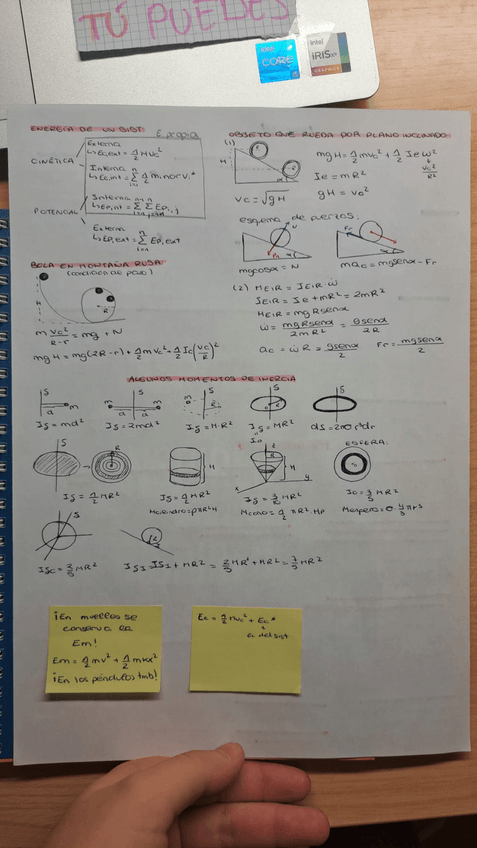 TÚ PUEDES
intel
CORE
intel
iRIS xe
GRAPHICS
ENERGÍA DE UN SIST.
E propia
CINÉTICA
Externa
↳Ec,ext = 1/2 M vc²
Interna
POTENCIAL
Interna
Externa
↳Ep,ext = Σ Ep,ext
BOLA EN MONTAÑA RUSA
(condición de paso)
H
R
m vc²/R-r = mg + N
mgH = mg(2R-r) + 1/2 m vc² + 1/2 Ic (vc/R)²
OBJETO QUE RUEDA POR PLANO INCLINADO
(1)
H
α
mgH = 1/2 mvc² + 1/2 Ie ω²
vc²/R²
Ie = mR²
gH = vc²
vc = √gH
esquema de fuerzas:
N
Fr
α
mgcosα = N
mac = mgsenα - Fr
(2) MEIR = IEIR·ẇ
IEIR = Ie + mR² = 2mR²
MEIR = mgRsenα
ẇ = mgRsenα/2mR² = gsenα/2R
ac = ẇR = gsenα/2
Fr = mgsenα/2
ALGUNOS MOMENTOS DE INERCIA
S
m
d
Is = md²
m
d
d
m
S
Is = 2md²
m
S
R
Is = M·R²
S
R
Is = MR²
S
dI = 2πσr³dr
S
R
Is = 1/2 MR²
H
Is = 1/2 MR²
Mcilindro = ρπR²H
z
R
H
x
y
ESFERA:
Io = 3/5 MR²
S
Isc = 2/5 MR²
= 2/5 MR² + MR² = 7/5 MR²
¡En muelles se
conserva la
Em!
Em = 1/2 mv² + 1/2 mkx²
¡En los péndulos tmb!
Ec = 1/2 mvc² + Ec*
Ec del sist.